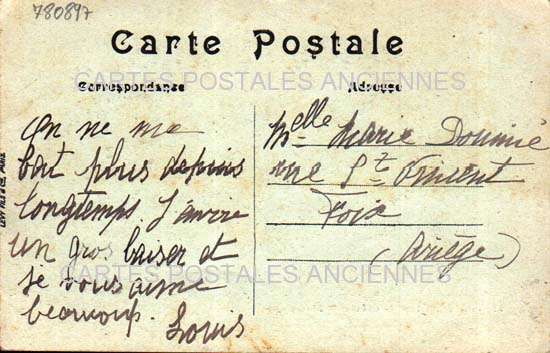 780897
Carte Postale
CARTES POSTALES ANCIENNES
Correspondance
Adresse
On ne me
bat plus depuis
longtemps. J'envoie
un gros baiser et
je vous aime
beaucoup.
Louis
Melle Marie Doumic
rue St Vincent
Foix
(Ariège)
CARTES POSTALES ANCIENNES
LEVY FILS & Cie, PARIS